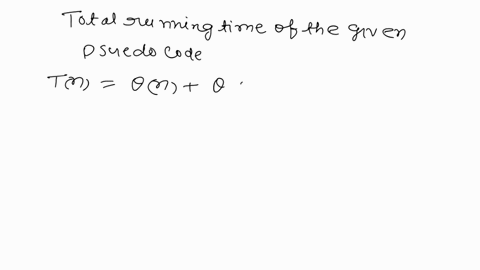 Total running time of the given
psuedo code
T(n) = θ(n) + θ .